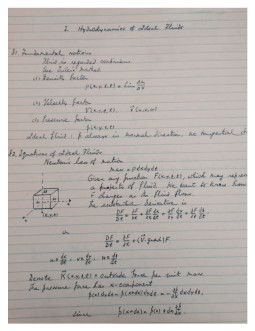 I Hydrodynamics of Ideal Fluids
§1 Fundamental notions
Fluid is regarded continuum
Use Euler's method
(1) Density factor
ρ(x,y,z,t) = lim Δm/Δv
(2) Velocity factor
(3) Pressure factor
p(x,y,z,t)
Ideal fluid: p always in normal direction, no tangential
§2 Equations of Ideal Fluids
Newton's law of motion
mass = ρ dx dy dz
Given any function F(x,y,z,t) which may represent
a property of fluid. We want to know how
F changes as the fluid flows.
The substantive derivative is
DF/Dt = ∂F/∂t + ∂F/∂x dx/dt + ∂F/∂y dy/dt + ∂F/∂z dz/dt
or
DF/Dt = ∂F/∂t + (v⃗·grad)F
u = dx/dt, v = dy/dt, w = dz/dt
Denote K⃗(x,y,z,t) = outside force per unit mass
the pressure force has x-component
p(x) dy dz − p(x+dx) dy dz = −∂p/∂x dx dy dz,
since p(x+dx) = p(x) + dx ∂p/∂x